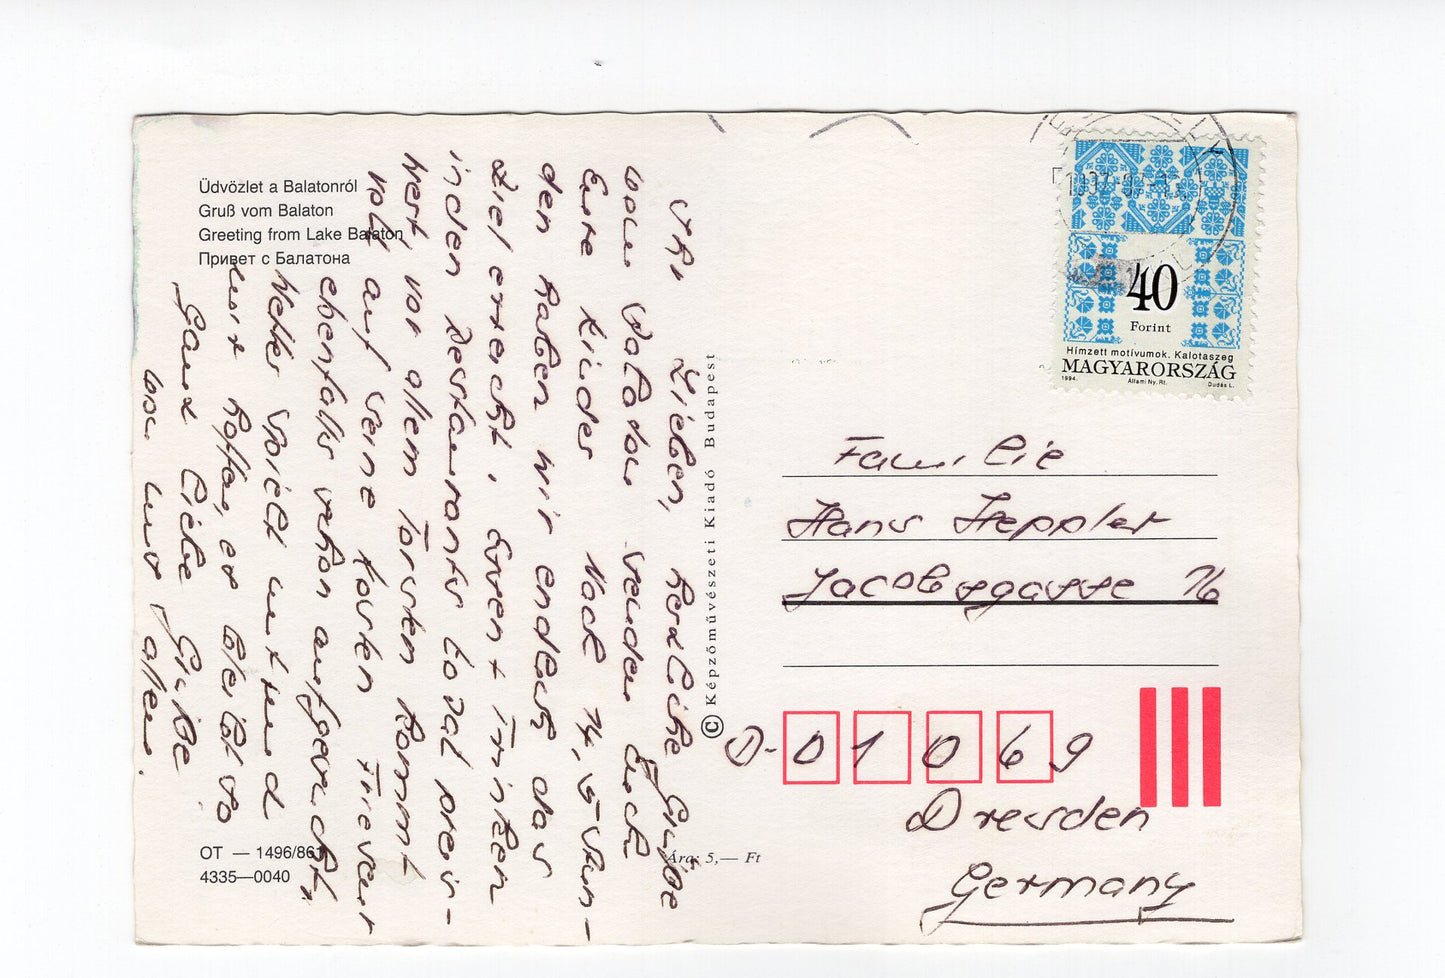 Üdvözlet a Balatonról
Gruß vom Balaton
Greeting from Lake Balaton
Привет с Балатона
Ihr Lieben, herzliche Grüße
vom Balaton senden Euch
Eure Kinder. Nach 14,5 Stun-
den haben wir endlich das
Ziel erreicht. Essen + Trinken
in den Restaurants total preis-
wert, vor allem Torsten kommt
voll auf seine Kosten. Friseur
ebenfalls schon aufgesucht.
Wetter spielt mit und
wir hoffen, es bleibt so
Ganz liebe Grüße
von uns allen.
OT — 1496/861
4335—0040
© Képzőművészeti Kiadó Budapest
Ára: 5,— Ft
40
Forint
Hímzett motívumok. Kalotaszeg
MAGYARORSZÁG
1994. Állami Ny. Rt. Dudás L.
Familie
Hans Heppler
Jacobsgasse 16
D-01069
Dresden
Germany